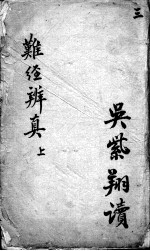 三
吳紫翔讀
難經辨真
上